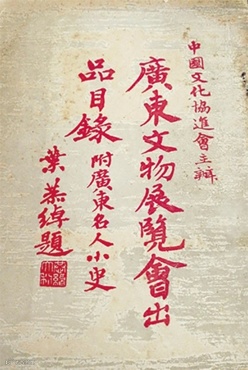 中國文化協進會主辦
廣東文物展覽會出
品目錄 附廣東名人小史
葉恭綽題